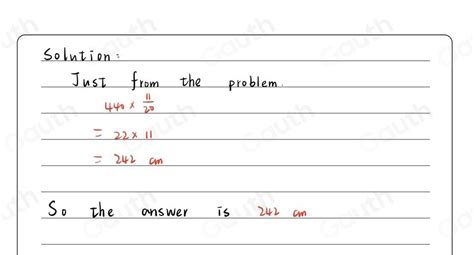 Solution:
Just from the problem.
440 × 11/20
= 22 × 11
= 242 cm
So the answer is 242 cm